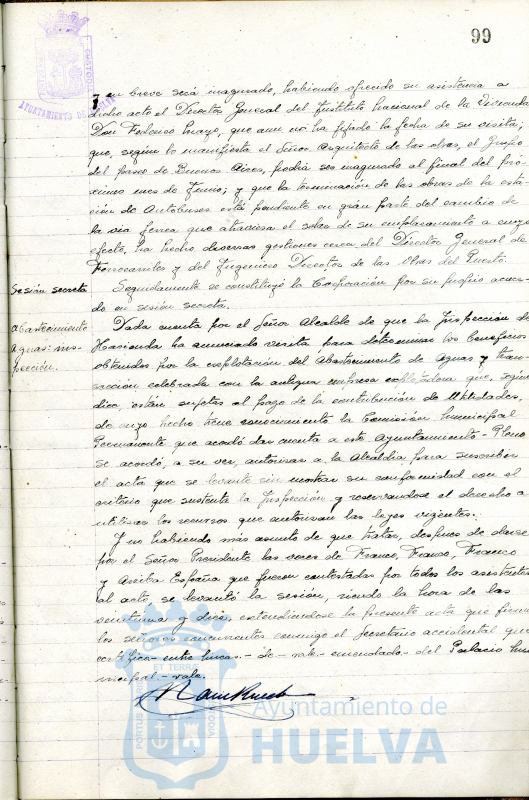 99
AYUNTAMIENTO DE HUELVA
y en breve será inagurado, habiendo ofrecido su asistencia a
dicho acto el Director General del Instituto Nacional de la Vivienda
Don Federico Mayo, que aun no ha fijado la fecha de su visita;
que, según le manifiesta el Señor Arquitecto de las obras, el Grupo
del paseo de Buenos Aires, podrá ser inagurado al final del pró-
ximo mes de Junio; y que la terminación de las obras de la esta-
ción de Autobuses está pendiente en gran parte del cambio de
la vía ferrea que atraviesa el solar de su emplazamiento a cuyo
efecto, ha hecho diversas gestiones cerca del Director General de
Ferrocarriles y del Ingeniero Director de las Obras del Puerto.
Sesión secreta
Seguidamente se constituyó la Corporación por su propio acuer-
do en sesión secreta.
Abastecimiento
Aguas: ins-
pección.
Dada cuenta por el Señor Alcalde de que la Inspección de
Hacienda ha anunciado visita para determinar los beneficios
obtenidos por la explotación del Abastecimiento de Aguas y tran-
sacción celebrada con la antigua empresa explotadora que, según
dice, están sujetas al pago de la contribución de Utilidades,
de cuyo hecho tiene conocimiento la Comisión Municipal
Permanente que acordó dar cuenta a este Ayuntamiento-Pleno
se acordó, a su vez, autorizar a la Alcaldía para suscribir
el acta que se levante sin mostrar su conformidad con el
criterio que sustenta la Inspección y reservandose el derecho a
utilizar los recursos que autorizan las leyes vigentes.
Y no habiendo más asunto de que tratar, despues de darse
por el Señor Presidente las voces de Franco, Franco, Franco
y Arriba España que fueron contestadas por todos los asistentes
al acto, se levantó la sesión, siendo la hora de las
veintiuna y diez, extendiendose la presente acta que firman
los señores concurrentes conmigo el Secretario accidental que
certifico - entre lineas.- de - vale - enmendado - del Palacio Mu-
nicipal - vale.
PORTUS MARIS ET TERRAE CUSTODIA
Ayuntamiento de
HUELVA